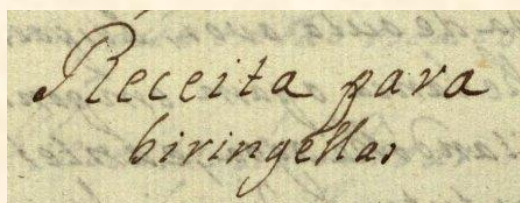 Receita para
biringellas